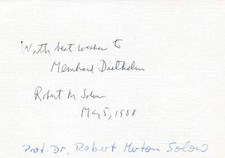 With best wishes to
Meinhard Diethelm
Robert M Solow
May 5, 1988
Prof. Dr. Robert Merton Solow